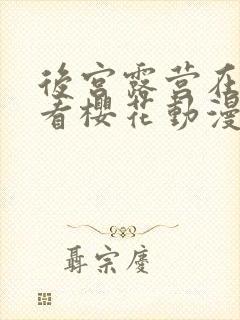 後宮露营在
看櫻花動漫
聶宗慶